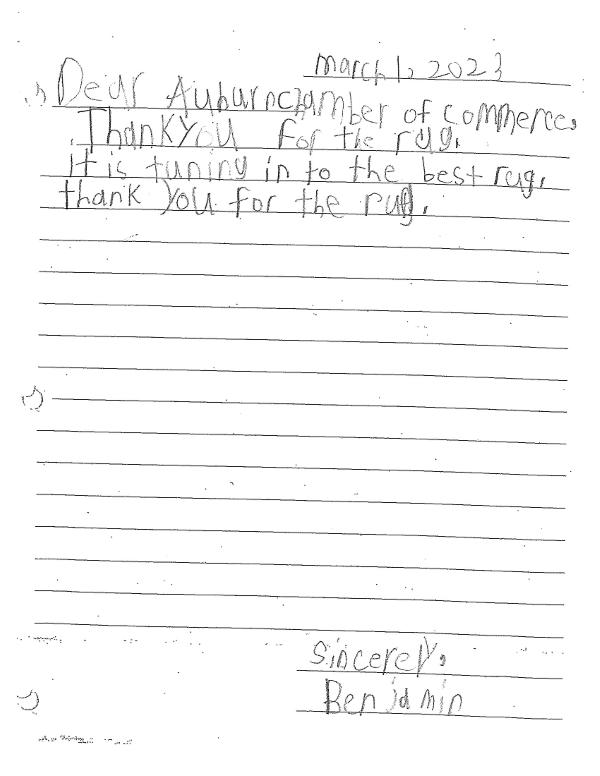 March 1, 2023
Dear Auburn chamber of commerce,
Thank you for the rug.
it is tuning in to the best rug.
thank you for the rug.
Sincerely,
Benjamin